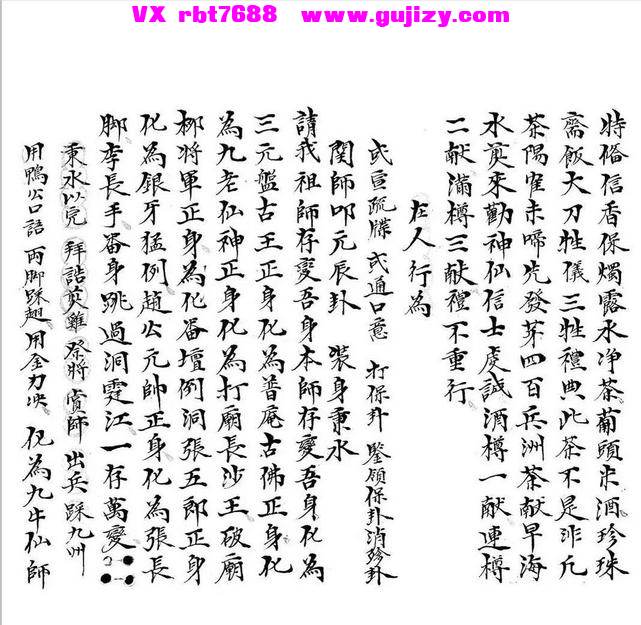 VX rbt7688 www.gujizy.com
時俻信香保燭露水净茶葡頭米酒珍珠
齋飯大刀牲儀三牲禮典此茶不是非凡
茶陽崔未啼先發芽四百兵洲茶献早海
水奠來勸神仙信士虔誠酒樽一献連樽
二献滿樽三献禮不重行
在人行為
或宣疏牒 或通口意 打保卦 鑒領保卦消殄卦
関師叩元辰卦 裝身秉水
請我祖師存變吾身本師存變吾身化為
三元盤古王正身化為普庵古佛正身化
為九老仙神正身化為打廟長沙王破廟
柳將軍正身為化番壇例洞張五郎正身
化為銀牙猛例趙公元帥正身化為張長
脚李長手番身跳過洞霆江一存萬變
秉水以完 拜誥奠雞 祭將 賞師 出兵 踩九州
用鴨公口語 両脚踩翅 用金刀决 化為九牛仙師